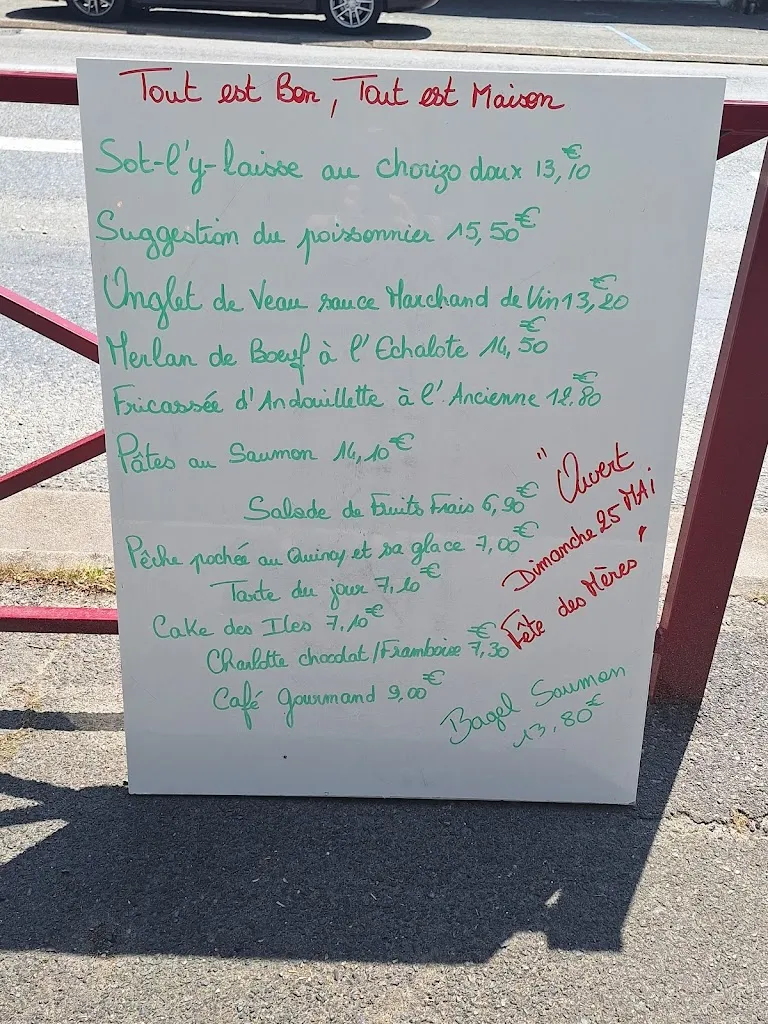 Tout est Bon, Tout est Maison
Sot-l'y-laisse au chorizo doux 13,10€
Suggestion du poissonnier 15,50€
Onglet de Veau sauce Marchand de Vin 13,20€
Merlan de Boeuf à l'Echalote 14,50€
Fricassée d'Andouillette à l'Ancienne 12,80€
Pâtes au Saumon 14,10€
Salade de Fruits Frais 6,90€
Pêche pochée au Quincy et sa glace 7,00€
Tarte du jour 7,10€
Cake des Iles 7,10€
Charlotte chocolat/Framboise 7,30€
Café Gourmand 9,00€
"Ouvert
Dimanche 25 MAi
Fête des Mères"
Bagel Saumon
13,80€